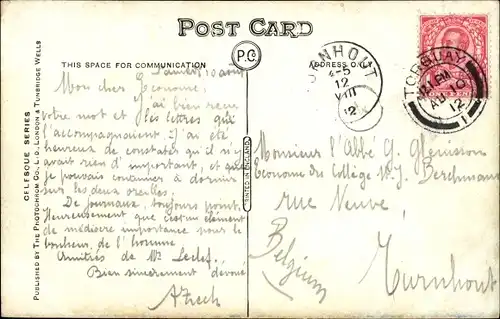 POST CARD
P.C.
THIS SPACE FOR COMMUNICATION
ADDRESS ONLY
Samedi 10 août
Mon cher Econome,
j'ai bien reçu
votre mot et les lettres qui
l'accompagnaient. J'ai été
heureux de constater qu'il n'y
avait rien d'important, et que
je pouvais continuer à dormir
sur les deux oreilles.
De journaux, toujours point.
Heureusement que c'est un élément
de médiocre importance pour le
bonheur de l'homme
Amitiés de Mr Leclef.
Bien sincèrement dévoué
TURNHOUT
4-5
12
VIII
12
TORQUAY
AU 10
12
1
Monsieur l'Abbé G. Glénisson
Econome du Collège St. J. Berchmans
rue Neuve,
Turnhout
Belgium
CELESQUE SERIES
PUBLISHED BY THE PHOTOCHROM CO., LTD., LONDON & TUNBRIDGE WELLS
PRINTED IN ENGLAND